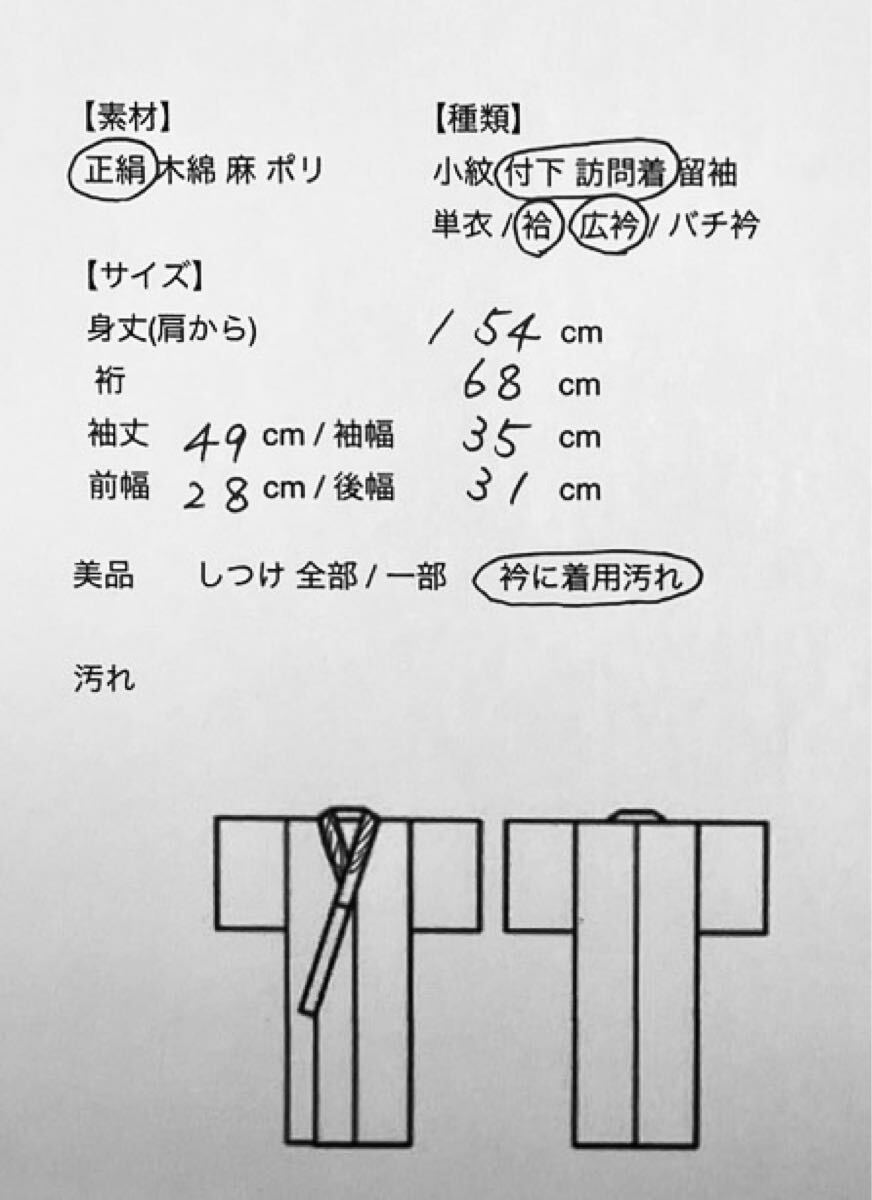 【素材】
正絹 木綿 麻 ポリ
【種類】
小紋 付下 訪問着 留袖
単衣 / 袷 広衿 / バチ衿
【サイズ】
身丈(肩から) 154 cm
裄 68 cm
袖丈 49 cm / 袖幅 35 cm
前幅 28 cm / 後幅 31 cm
美品 しつけ 全部 / 一部 衿に着用汚れ
汚れ